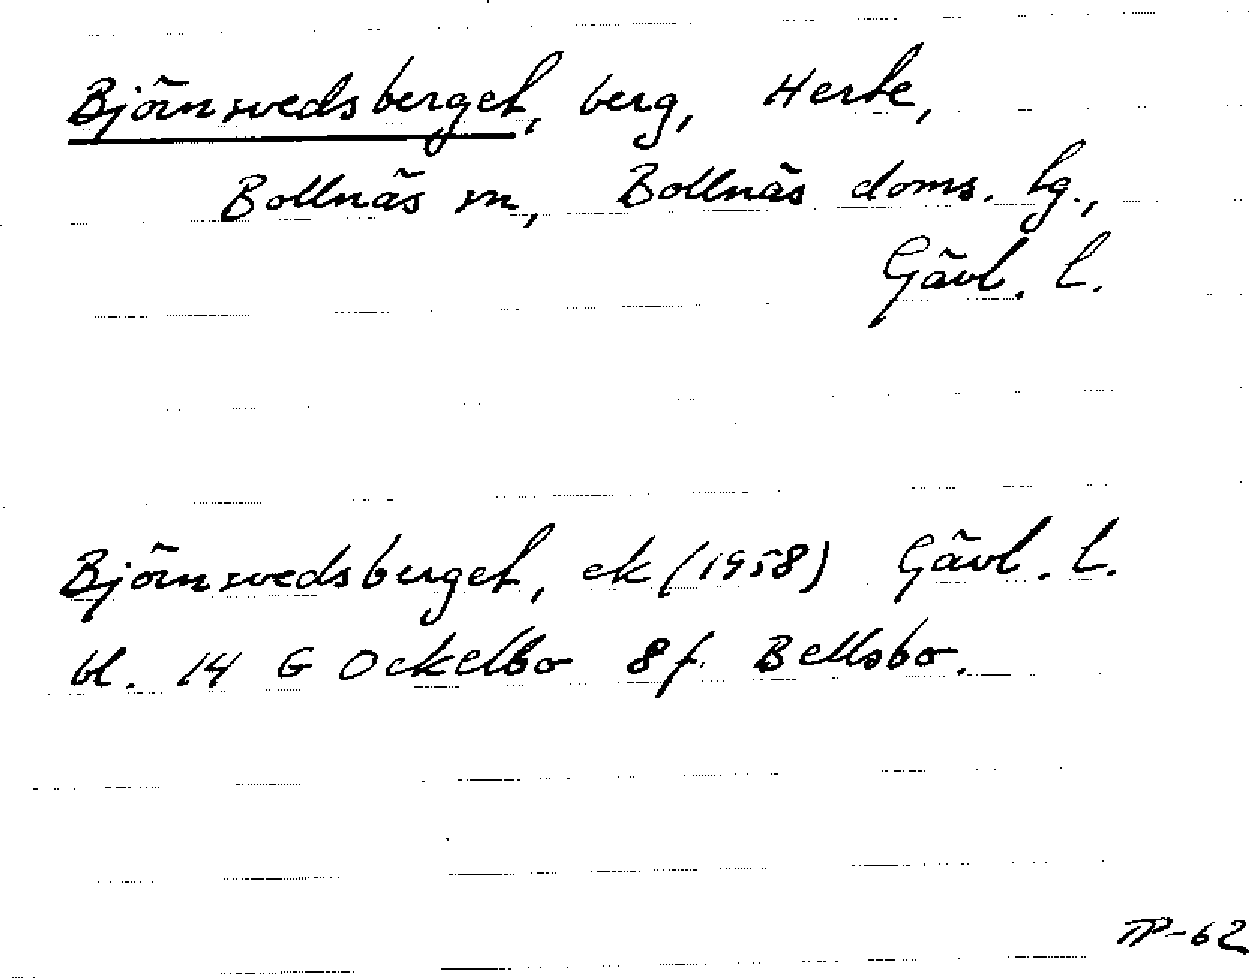 Björnsvedsberget, berg, Herte,
Bollnäs sn, Bollnäs doms. hg.,
Gävl. l.
Björnsvedsberget, ek (1958) Gävl. l.
bl. 14 G Ockelbo 8 f. Bellsbo.
TP-62